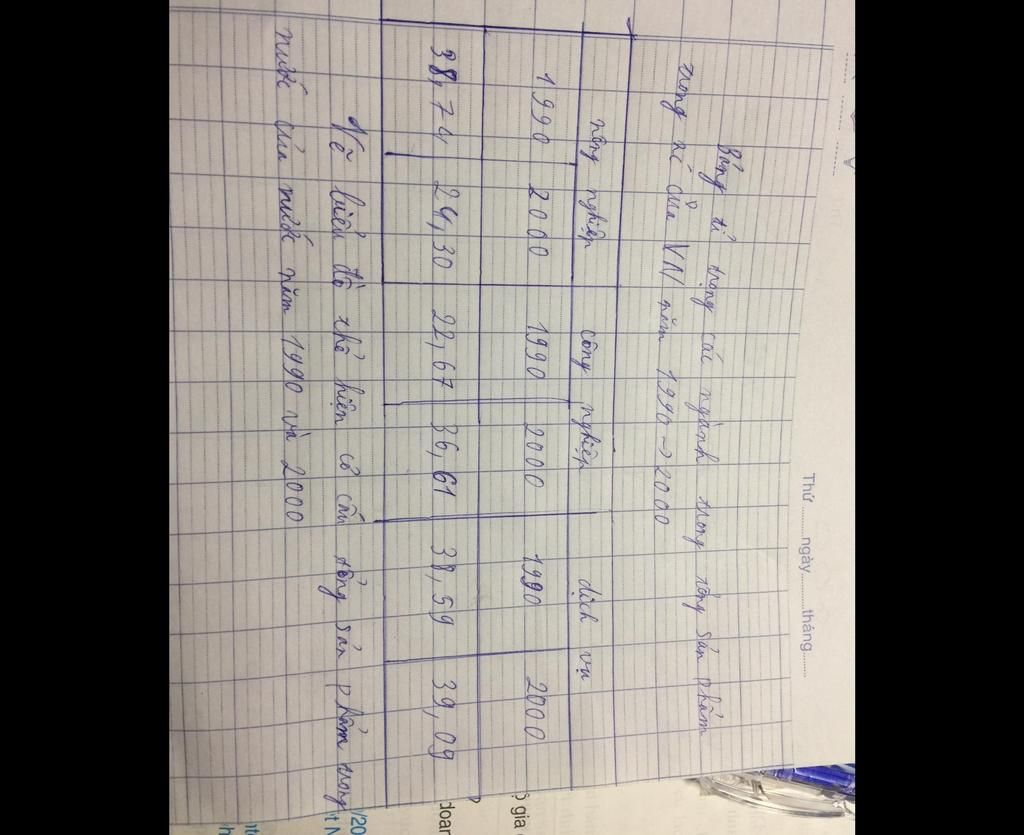 Thứ .........ngày..........tháng......
Bảng tỉ trọng các ngành trong tổng sản phẩm
trong của VN năm 1990 -> 2000
nông nghiệp công nghiệp dịch vụ
1990 2000 1990 2000 1990 2000
38,74 24,30 22,67 36,61 38,59 39,09
Vẽ biểu đồ thể hiện cơ cấu tổng sản phẩm trong
nước của nước năm 1990 và 2000
gia
doan